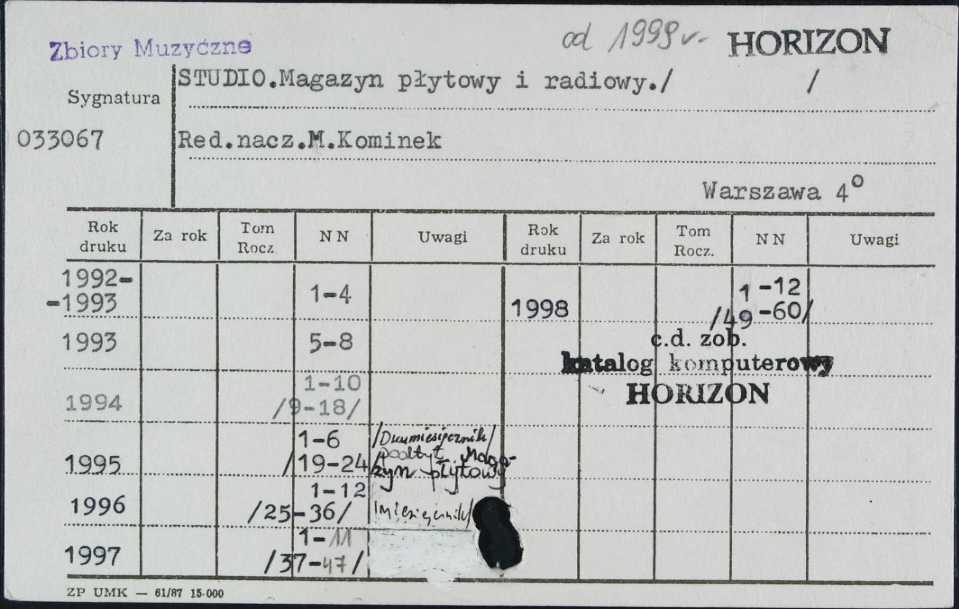 od 1999r. HORIZON
Zbiory Muzyczne
STUDIO.Magazyn płytowy i radiowy./ /
Sygnatura
033067 Red.nacz.M.Kominek
Warszawa 4°
Rok druku Za rok Tom Rocz. NN Uwagi Rok druku Za rok Tom Rocz. NN Uwagi
1992-
-1993 1-4
1998 1-12
/49-60/
1993 5-8
c.d. zob.
katalog komputerowy
HORIZON
1994 1-10
/9-18/
1995 1-6
/19-24/
/Dwumiesięcznik/
podtyt. Maga-
zyn płytowy
1996 1-12
/25-36/
/miesięcznik/
1997 1-11
/37-47/
ZP UMK — 61/87 15·000